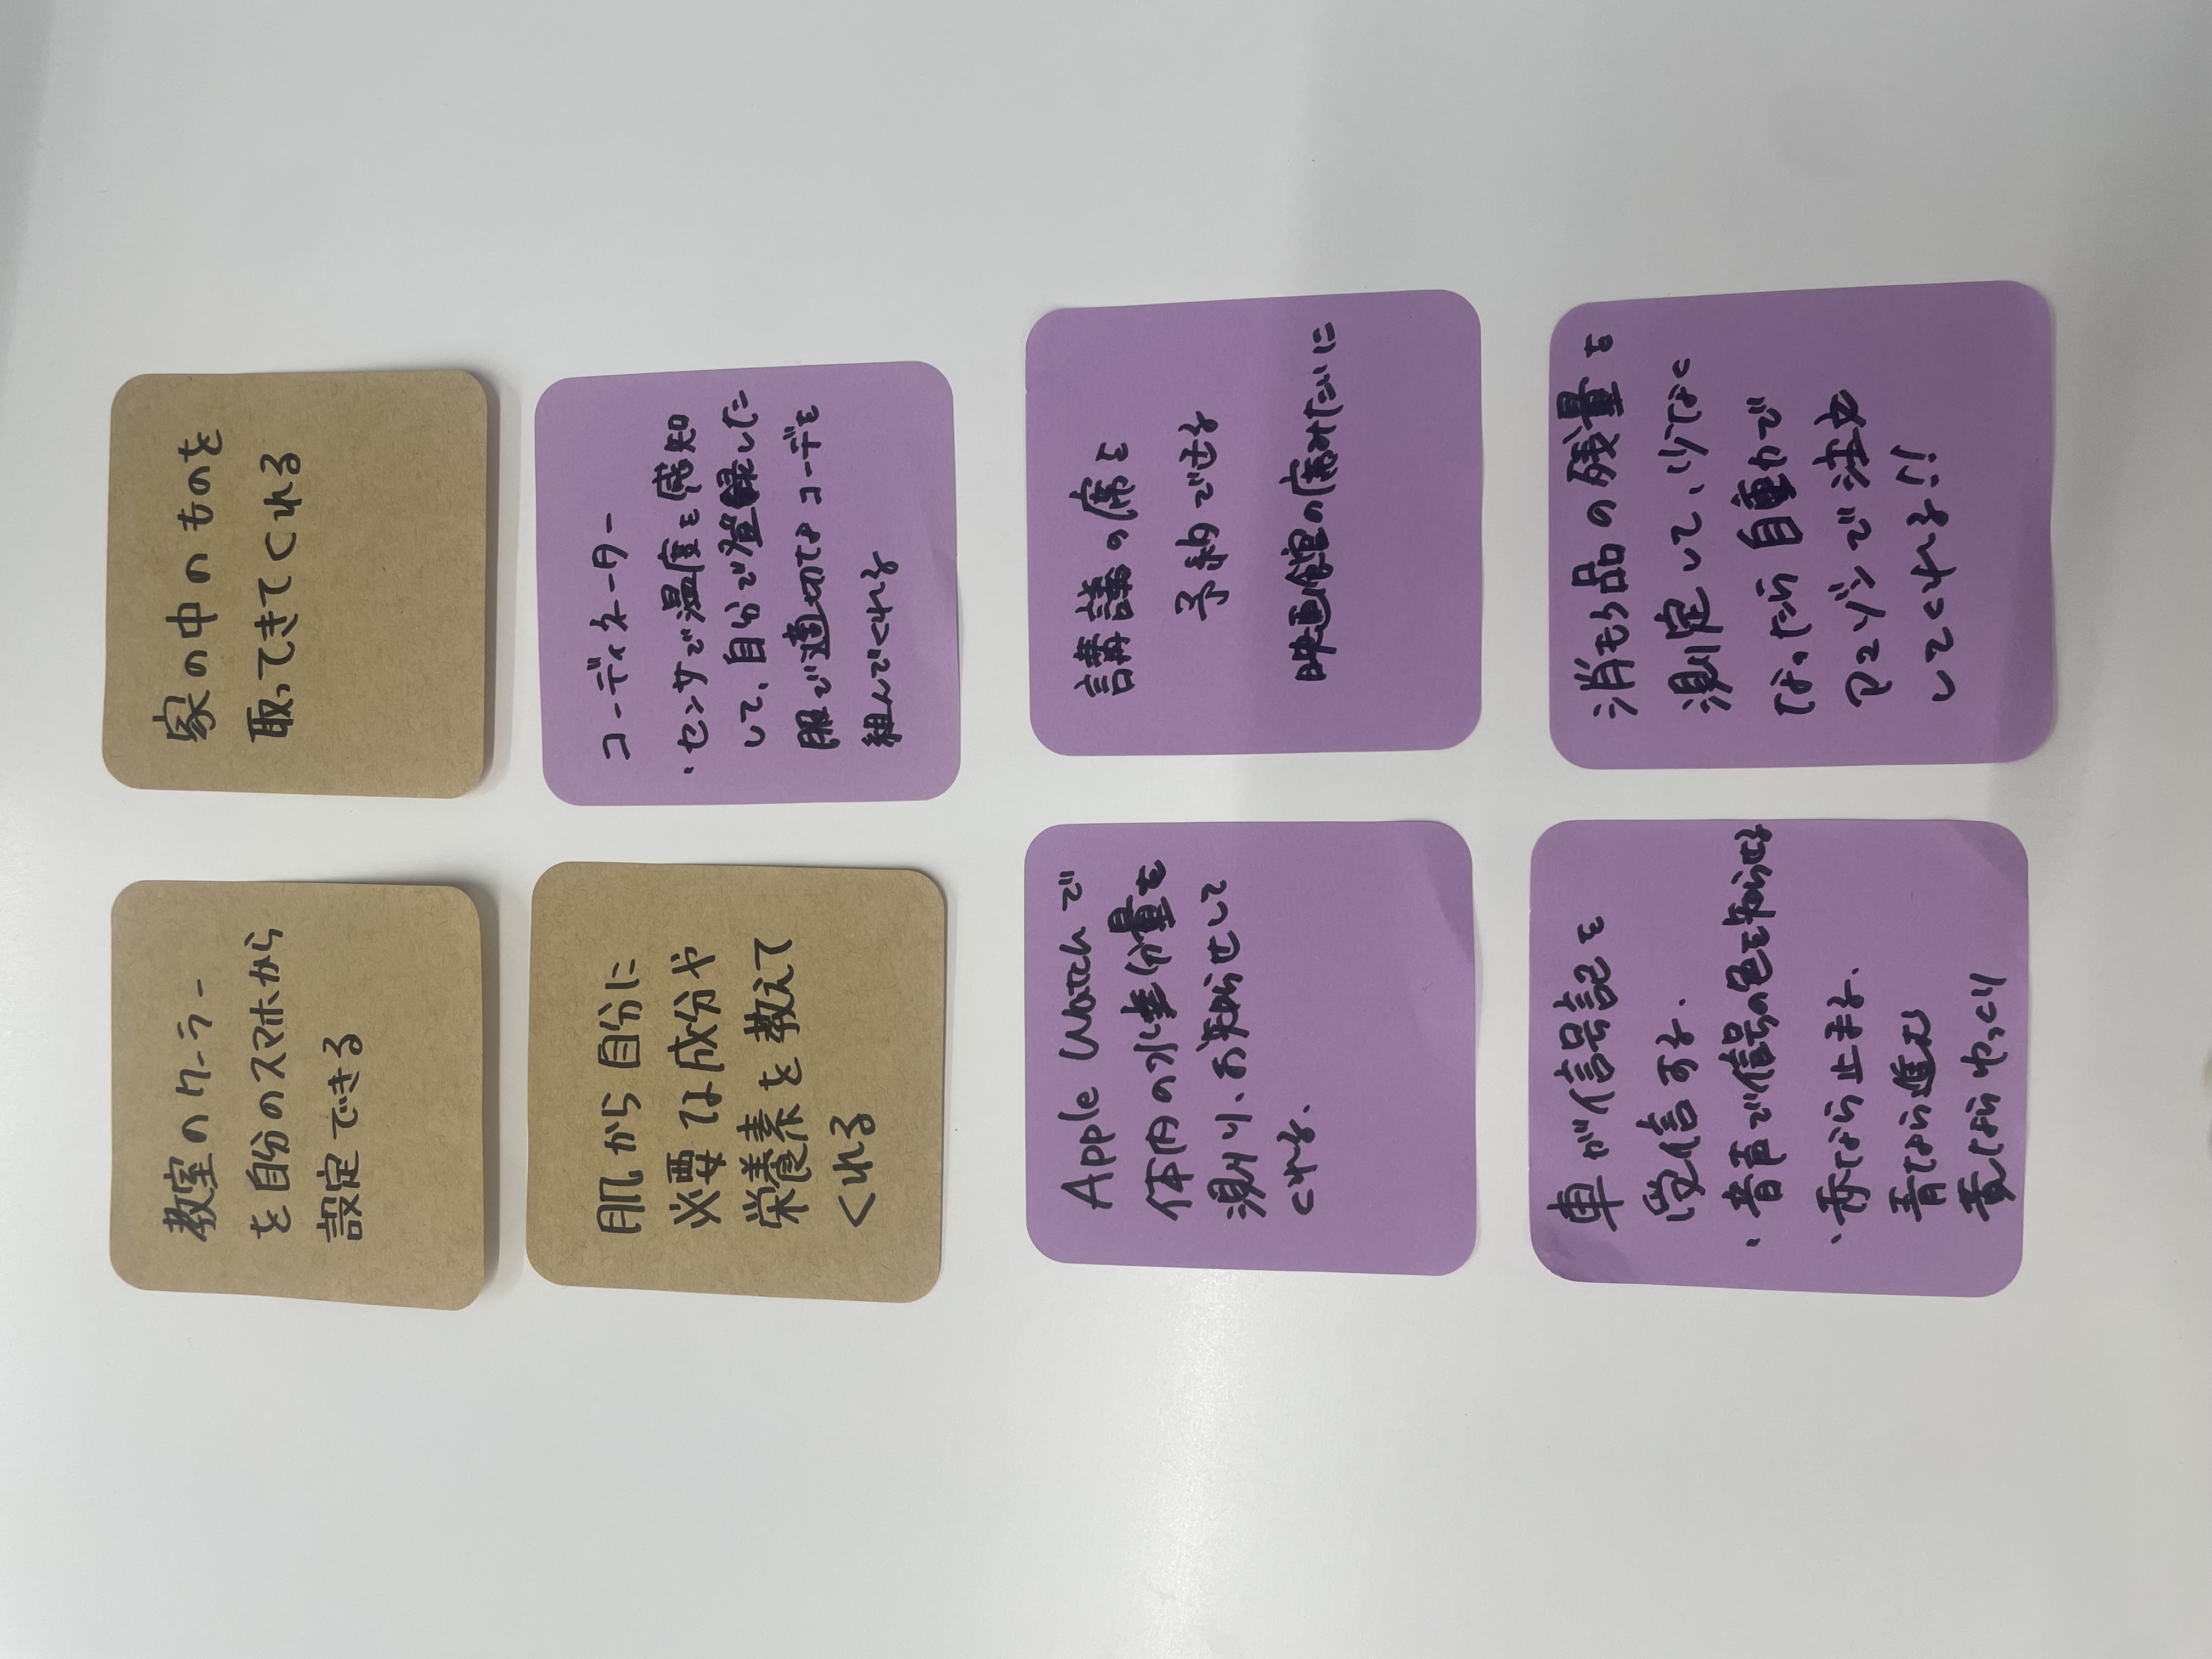 教室のクーラー
を自分のスマホから
設定できる
家の中のものを
取ってきてくれる
肌から自分に
必要な成分や
栄養素を教えて
くれる
コーディネーター
・センサで温度を感知
して、自分で登録した
服で適切なコーデを
組んでくれる
Apple Watchで
体内の水分量を
測り、お知らせして
くれる.
講議の席を
予約できる
映画館の席みたいに
車が信号記を
受信する.
・音声で信号の色を知らせる
・赤なら止まる.
青なら進む
黄ならゆっくり
消もう品の残量を
測定して、少なく
なったら自動で
アマゾンで注文
してくれる!!